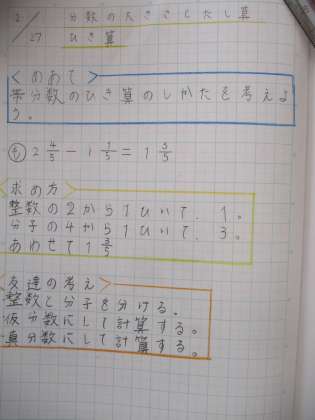 2/27 分数の大きさとたし算
ひき算
<めあて>
帯分数のひき算のしかたを考えよ
う。
も 2 4/5 - 1 1/5 = 1 3/5
<求め方>
整数の2から1ひいて、1。
分子の4から1ひいて、3。
あわせて1 3/5
<友達の考え>
整数と分子を分ける。
仮分数にして計算する。
真分数にして計算する。